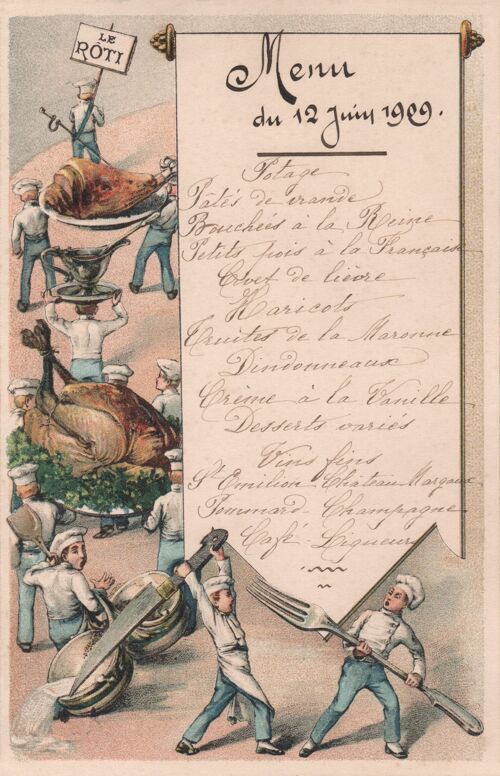 LE
RÔTI
Menu
du 12 Juin 1909.
Potage
Pâtés de viande
Bouchées à la Reine
Petits pois à la Française
Civet de lièvre
Haricots
Truites de la Maronne
Dindonneaux
Crème à la Vanille
Desserts variés
Vins fins
St Emilion - Chateau Margaux
Pommard - Champagne
Café - Liqueurs